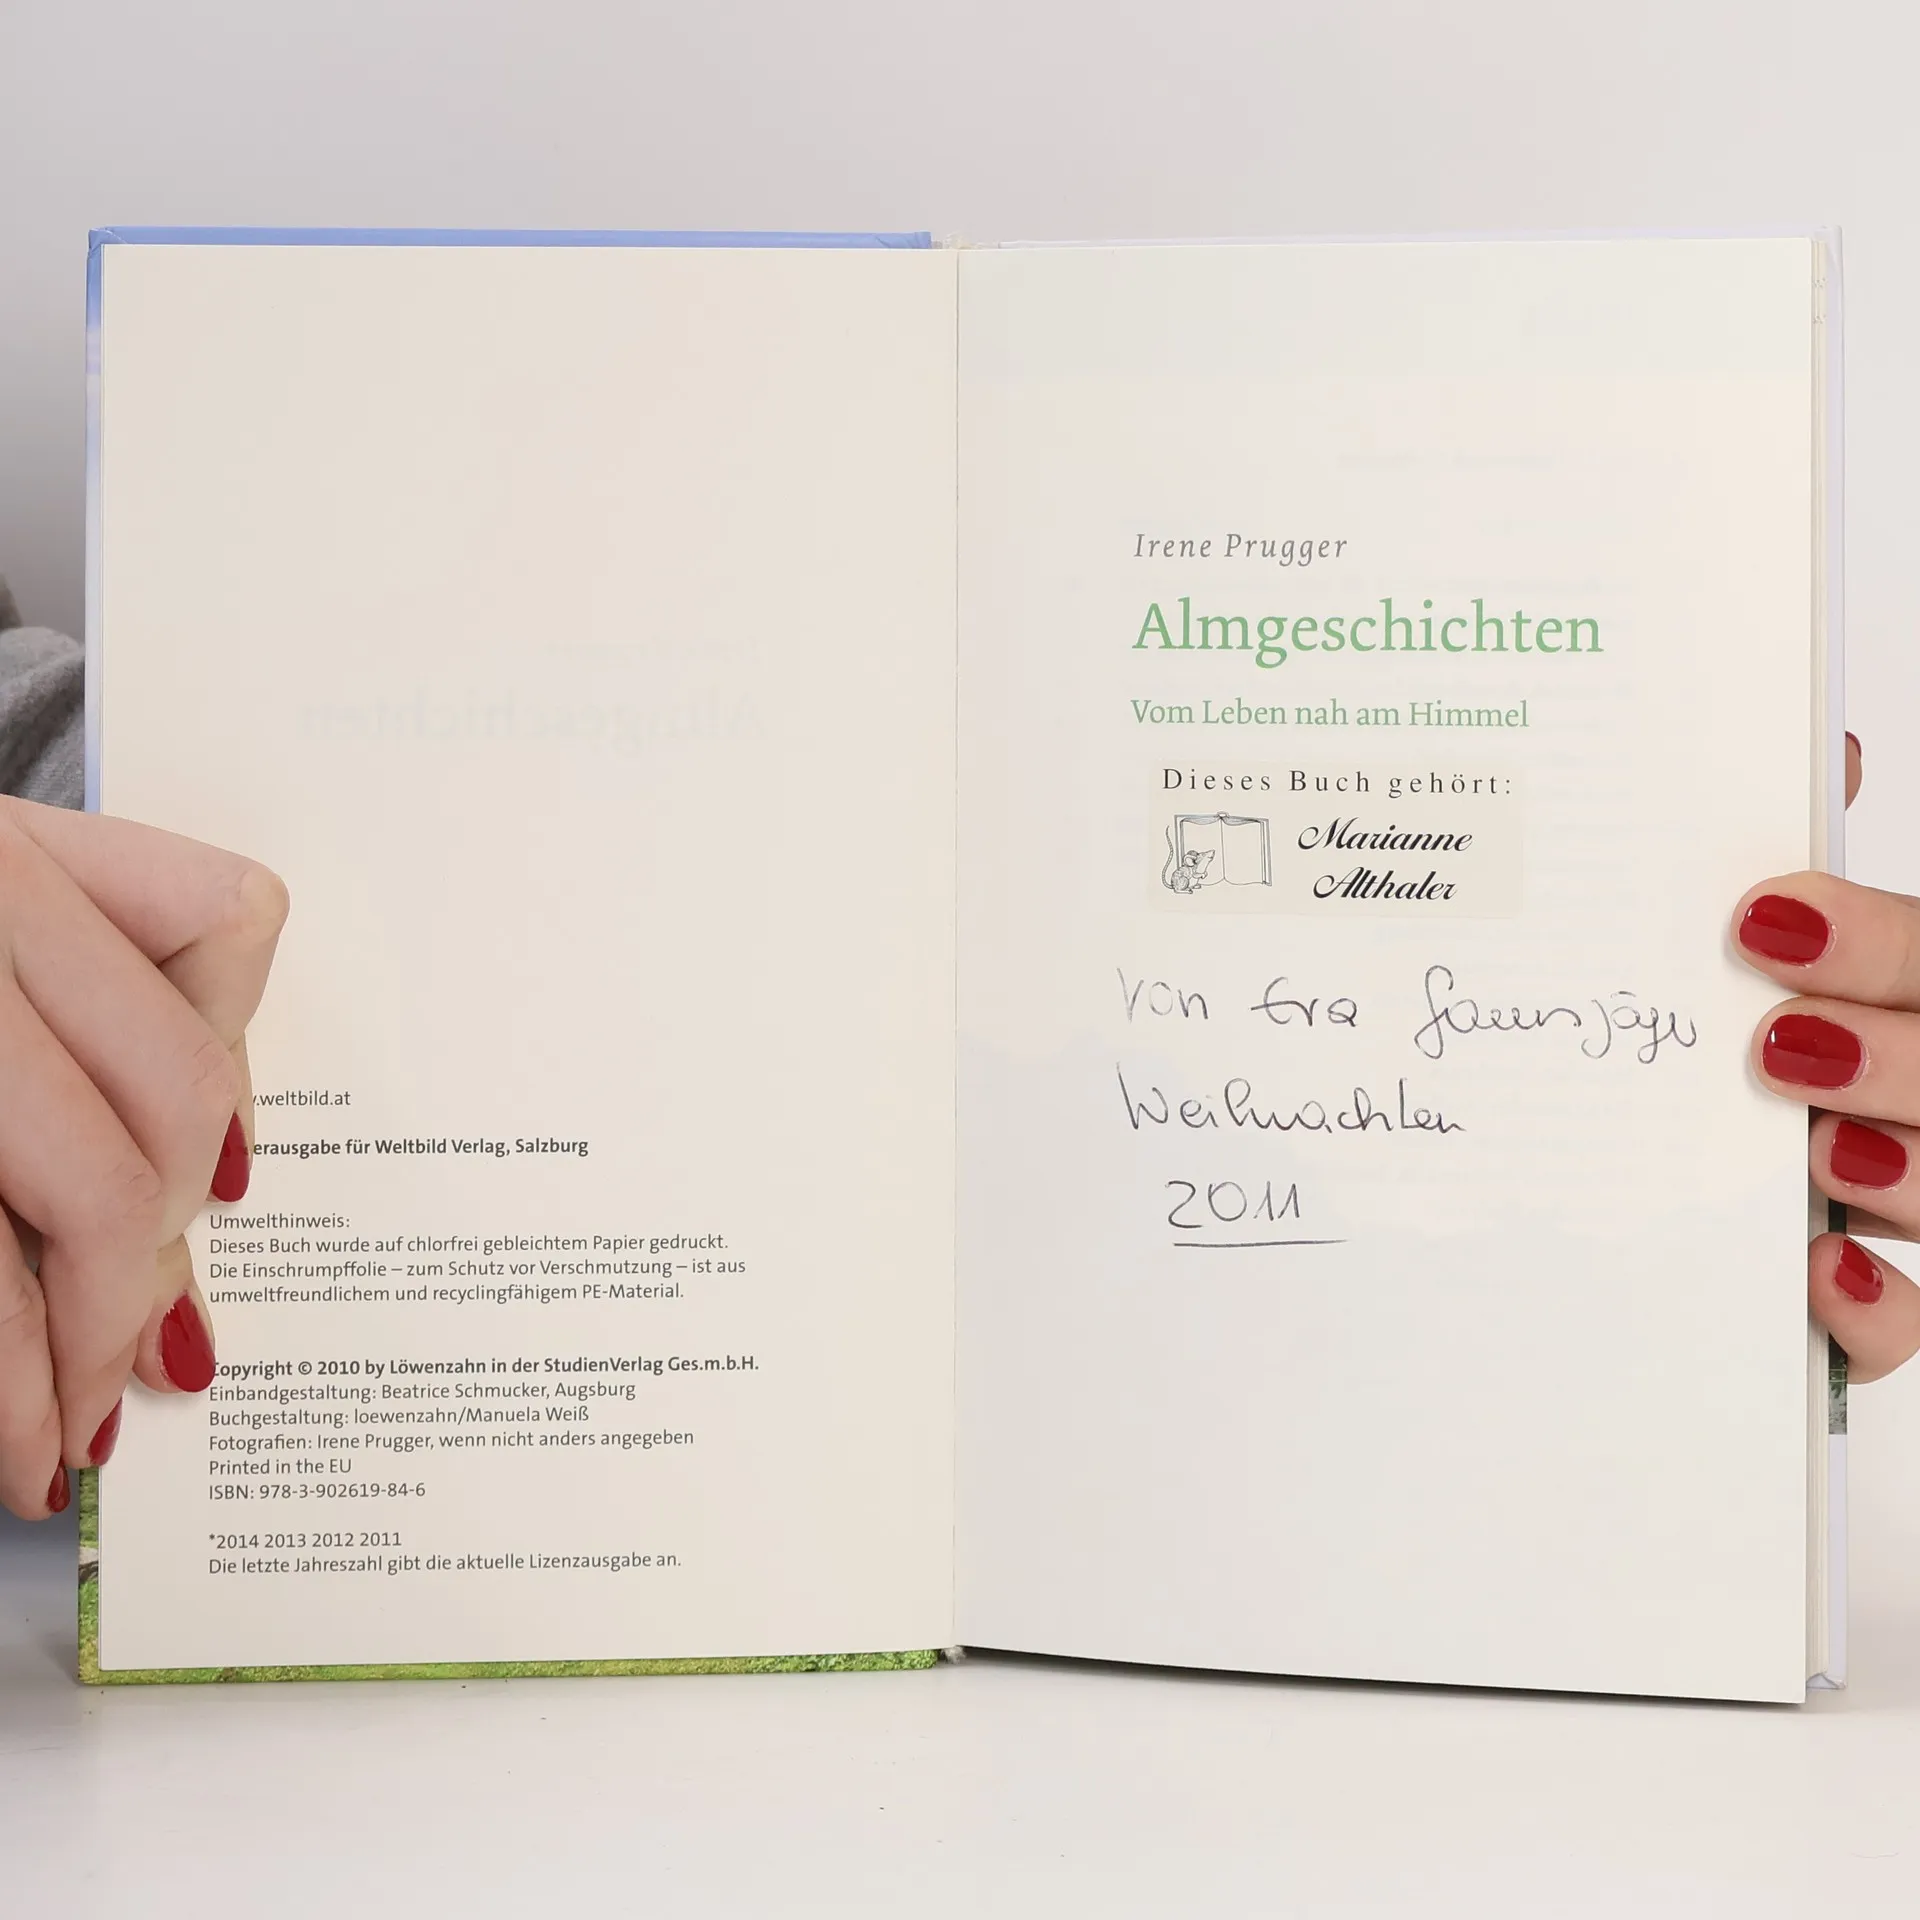 .weltbild.at
erausgabe für Weltbild Verlag, Salzburg
Umwelthinweis:
Dieses Buch wurde auf chlorfrei gebleichtem Papier gedruckt.
Die Einschrumpffolie – zum Schutz vor Verschmutzung – ist aus
umweltfreundlichem und recyclingfähigem PE-Material.
Copyright © 2010 by Löwenzahn in der StudienVerlag Ges.m.b.H.
Einbandgestaltung: Beatrice Schmucker, Augsburg
Buchgestaltung: loewenzahn/Manuela Weiß
Fotografien: Irene Prugger, wenn nicht anders angegeben
Printed in the EU
ISBN: 978-3-902619-84-6
*2014 2013 2012 2011
Die letzte Jahreszahl gibt die aktuelle Lizenzausgabe an.
Irene Prugger
Almgeschichten
Vom Leben nah am Himmel
Dieses Buch gehört:
Marianne
Althaler
Von Eva
Weihnachten
2011